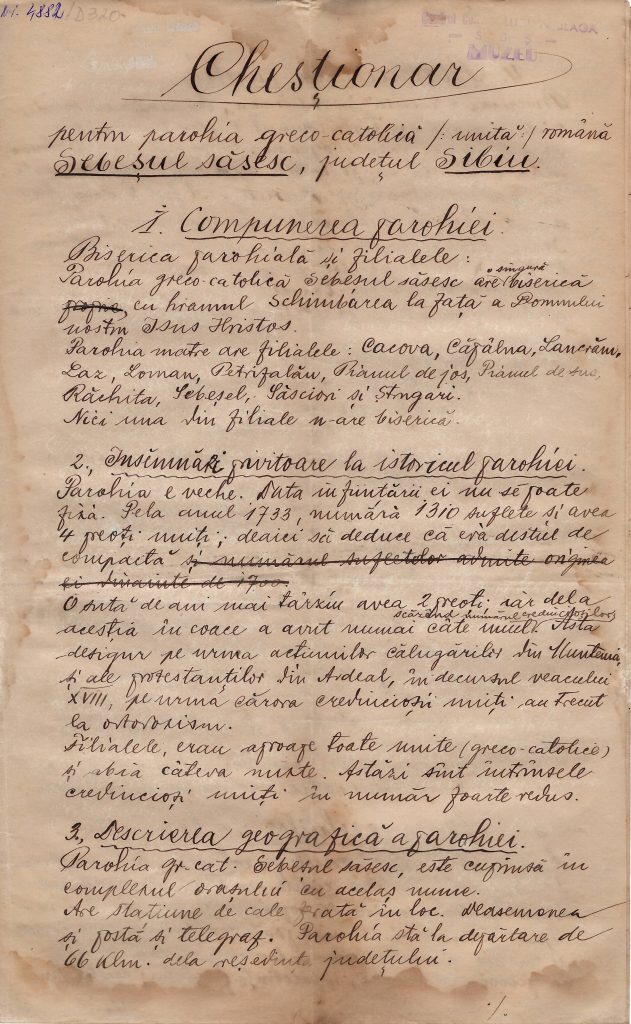 4882/D320
MUZEU
Chestionar
pentru parohia greco-catolică /: unită :/ română
Sebeșul săsesc, județul Sibiu.
I. Compunerea parohiei.
Biserica parohială și filialele:
Parohia greco-catolică Sebeșul săsesc are o singură biserică
proprie, cu hramul Schimbarea la față a Domnului
nostru Isus Hristos.
Parohia matre are filialele: Cacova, Căpâlna, Lancrăm,
Laz, Loman, Petrifalău, Pianul de jos, Pianul de sus,
Răchita, Sebeșel, Săsciori și Strugari.
Nici una din filiale n-are biserică.
2., Însemnări privitoare la istoricul parohiei.
Parohia e veche. Data înființării ei nu se poate
fixă. Pela anul 1733, numără 1310 suflete și avea
4 preoți uniți; deaici să deduce că eră destul de
compactă și numărul sufletelor admite originea
ei dinainte de 1700.
O sută de ani mai târziu avea 2 preoți; iar dela
aceștia în coace a avut numai câte unul. scăzând numărul credincioșilor Asta
desigur pe urma acțiunilor călugărilor din Muntenia,
și ale protestanților din Ardeal, în decursul veacului
XVIII, pe urma cărora credincioșii uniți au trecut
la ortodoxism.
Filialele, erau aproape toate unite (greco-catolice)
și abia câteva mixte. Astăzi sînt întrînsele
credincioși uniți în număr foarte redus.
3., Descrierea geografică a parohiei.
Parohia gr. cat. Sebeșul săsesc, este cuprinsă în
complexul orașului cu acelaș nume.
Are stațiune de cale ferată în loc. Deasemenea
și postă și telegraf. Parohia stă la depărtare de
66 Klm. dela reședința județului.
./.